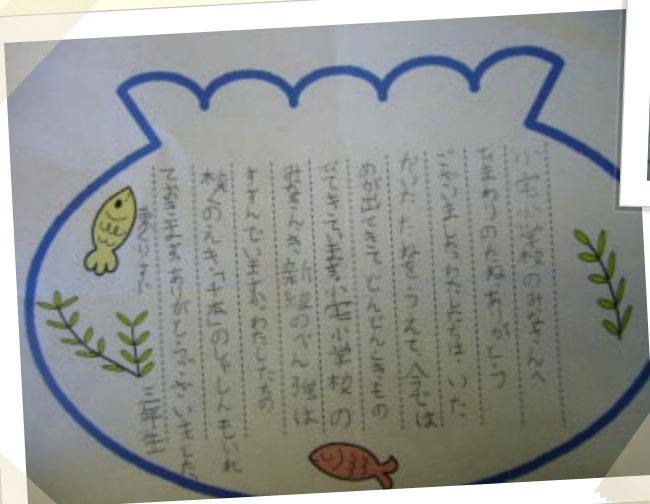 小宅小学校のみなさんへ
ひまわりのたねありがとう
ございました。わたしたちは、いた
だいたたねをうえて、今では
めが出てきてどんどん大きもの
なってきています。小宅小学校の
みなさん、新
のべん強は
すすんでいますか。わたしたちの
校くのえき「千本」のしゃしんもいれ
ておきます。ありがとうございました。
三年生